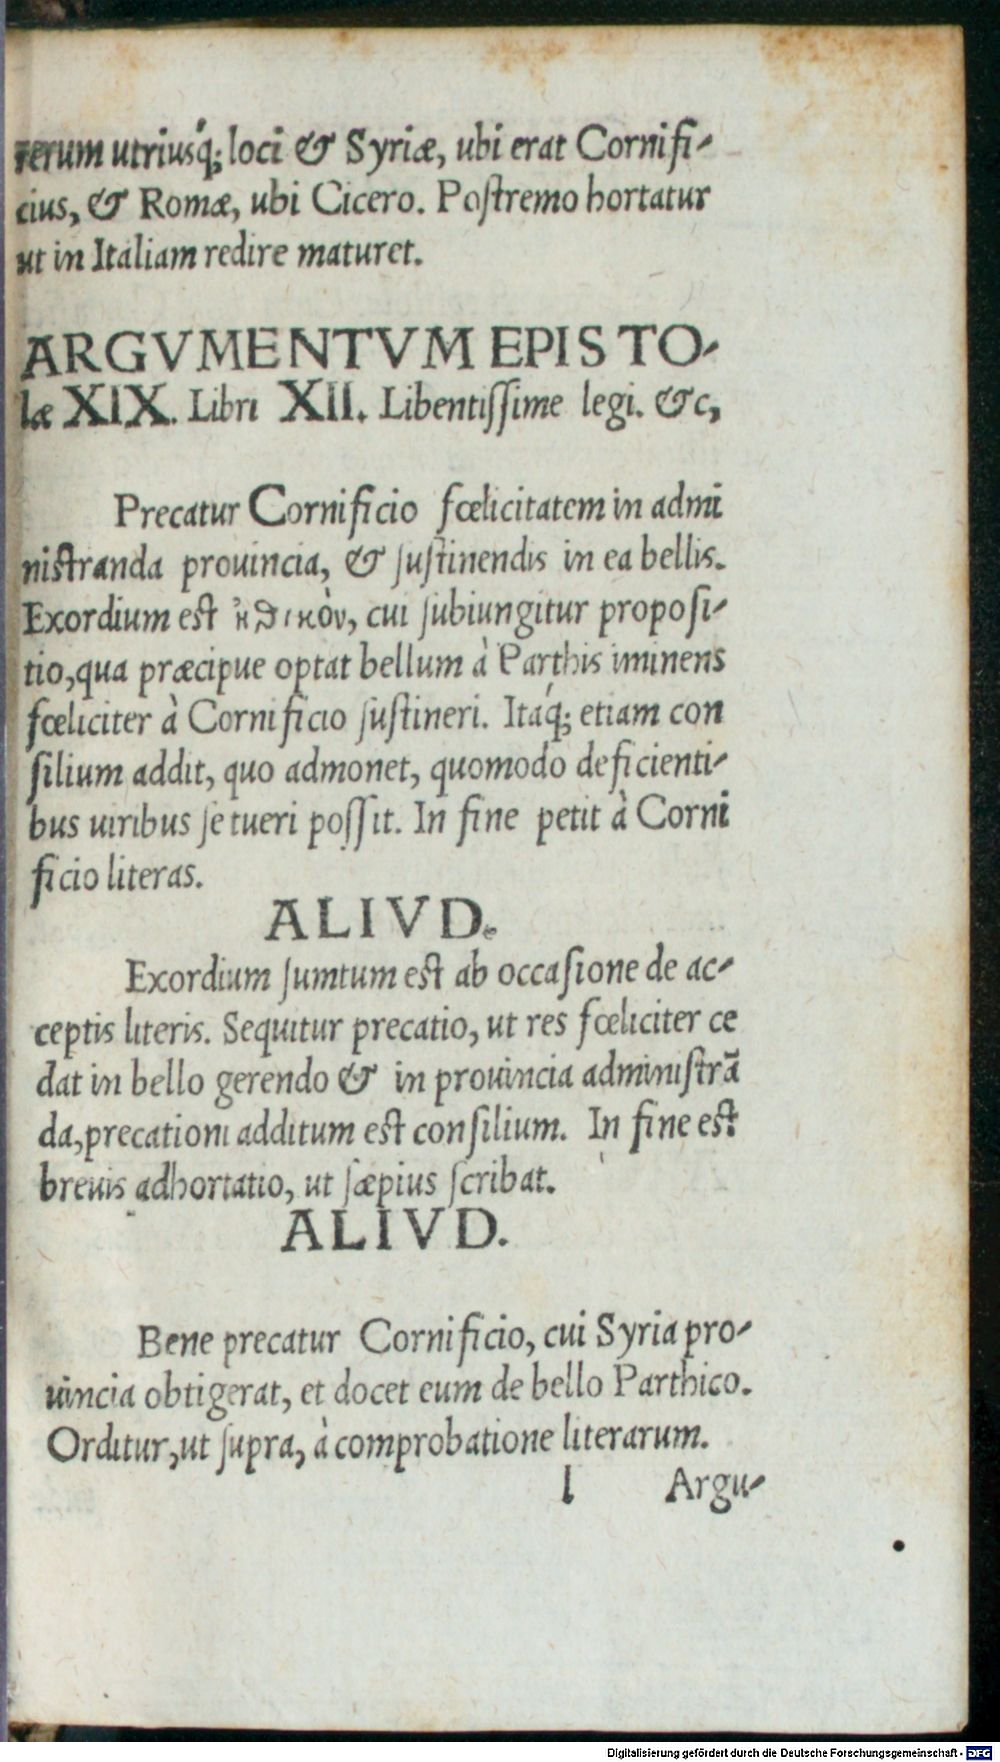 rerum utriusq́; loci & Syriæ, ubi erat Cornifi-
cius, & Romæ, ubi Cicero. Postremo hortatur
ut in Italiam redire maturet.
ARGVMENTVM EPISTO-
læ XIX. Libri XII. Libentissime legi. &c,
Precatur Cornificio fœlicitatem in admi
nistranda prouincia, & sustinendis in ea bellis.
Exordium est ἠθικὸν, cui subiungitur proposi-
tio, qua præcipue optat bellum à Parthis iminens
fœliciter à Cornificio sustineri. Itaq́; etiam con
silium addit, quo admonet, quomodo deficienti-
bus uiribus se tueri possit. In fine petit à Corni
ficio literas.
ALIVD.
Exordium sumtum est ab occasione de ac-
ceptis literis. Sequitur precatio, ut res fœliciter ce
dat in bello gerendo & in prouincia administrã
da, precationi additum est consilium. In fine est
breuis adhortatio, ut sæpius scribat.
ALIVD.
Bene precatur Cornificio, cui Syria pro-
uincia obtigerat, et docet eum de bello Parthico.
Orditur, ut supra, à comprobatione literarum.
I Argu-
Digitalisierung gefördert durch die Deutsche Forschungsgemeinschaft - DFG